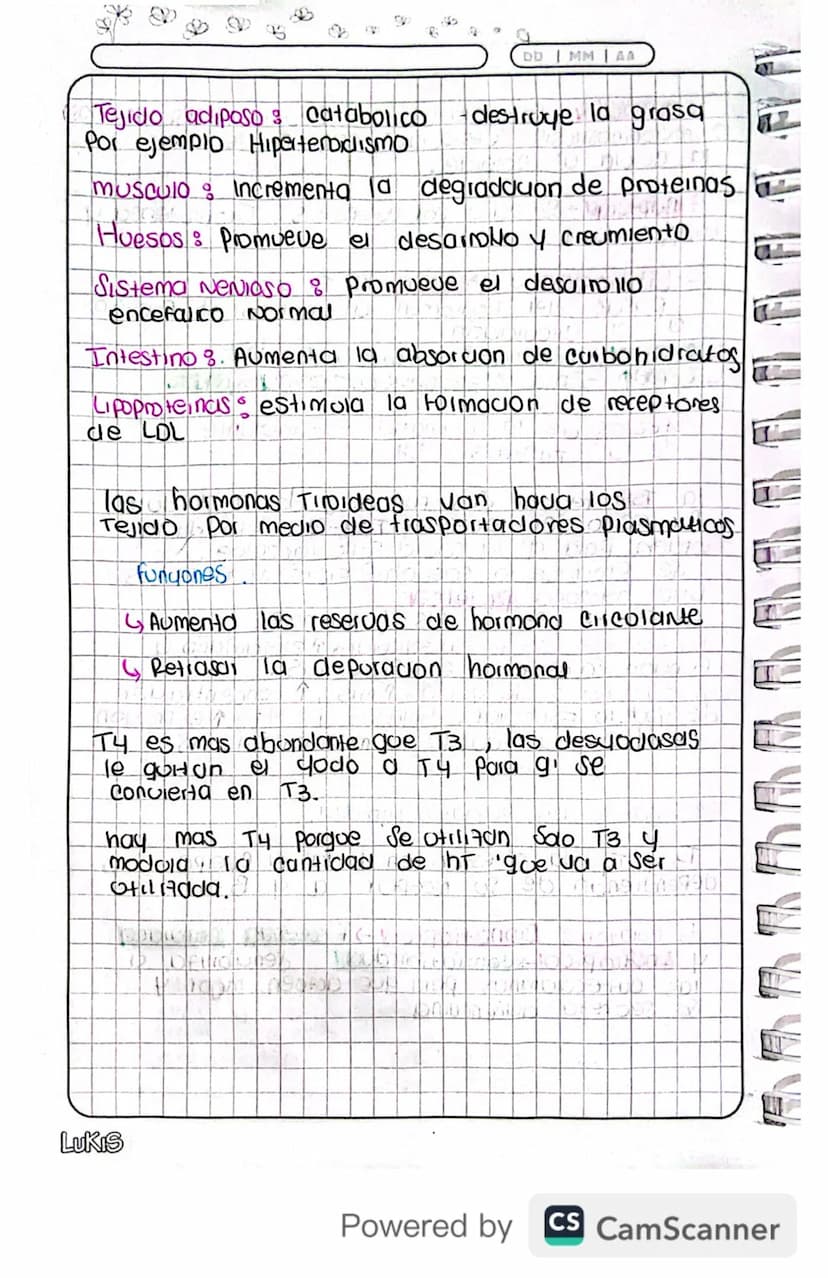 DD | MM | AA
Tejido adiposo: catabolico - destruye la grasa
Por ejemplo Hiperteroidismo
musculo: Incrementa la degradacion de proteinas
Huesos: Promueve el desarrollo y crecimiento
Sistema Nervioso: promueve el desarrollo
encefalico Normal
Intestino: Aumenta la absorcion de carbohidratos
Lipoproteinas: estimula la formacion de receptores
de LDL
las hormonas Tiroideas van hacia los
Tejido Por medio de trasportadores Plasmaticos
funciones.
↳ Aumenta las reservas de hormona circolante
↳ Retrasar la depuracion hormonal
T4 es mas abondante que T3, las desyodasas
le quitan el yodo a T4 para q' se
convierta en T3.
hay mas T4 porque se utilizan solo T3 y
modula la cantidad de hT que va a ser
utilizada.
LUKIS
Powered by CS CamScanner